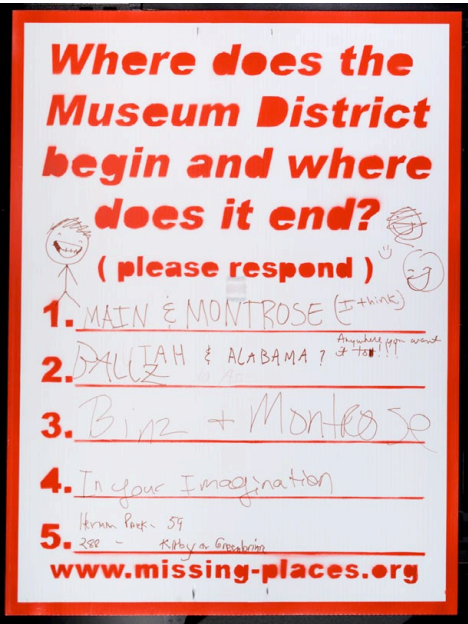 Where does the
Museum District
begin and where
does it end?
( please respond )
1. MAIN & MONTROSE (I think)
Anywhere you want
2. & ALABAMA ? it to !!!
3. Binz + Montrose
4. In your Imagination
Herman Park - 59
5. 288 - Kirby or Greenbriar
www.missing-places.org